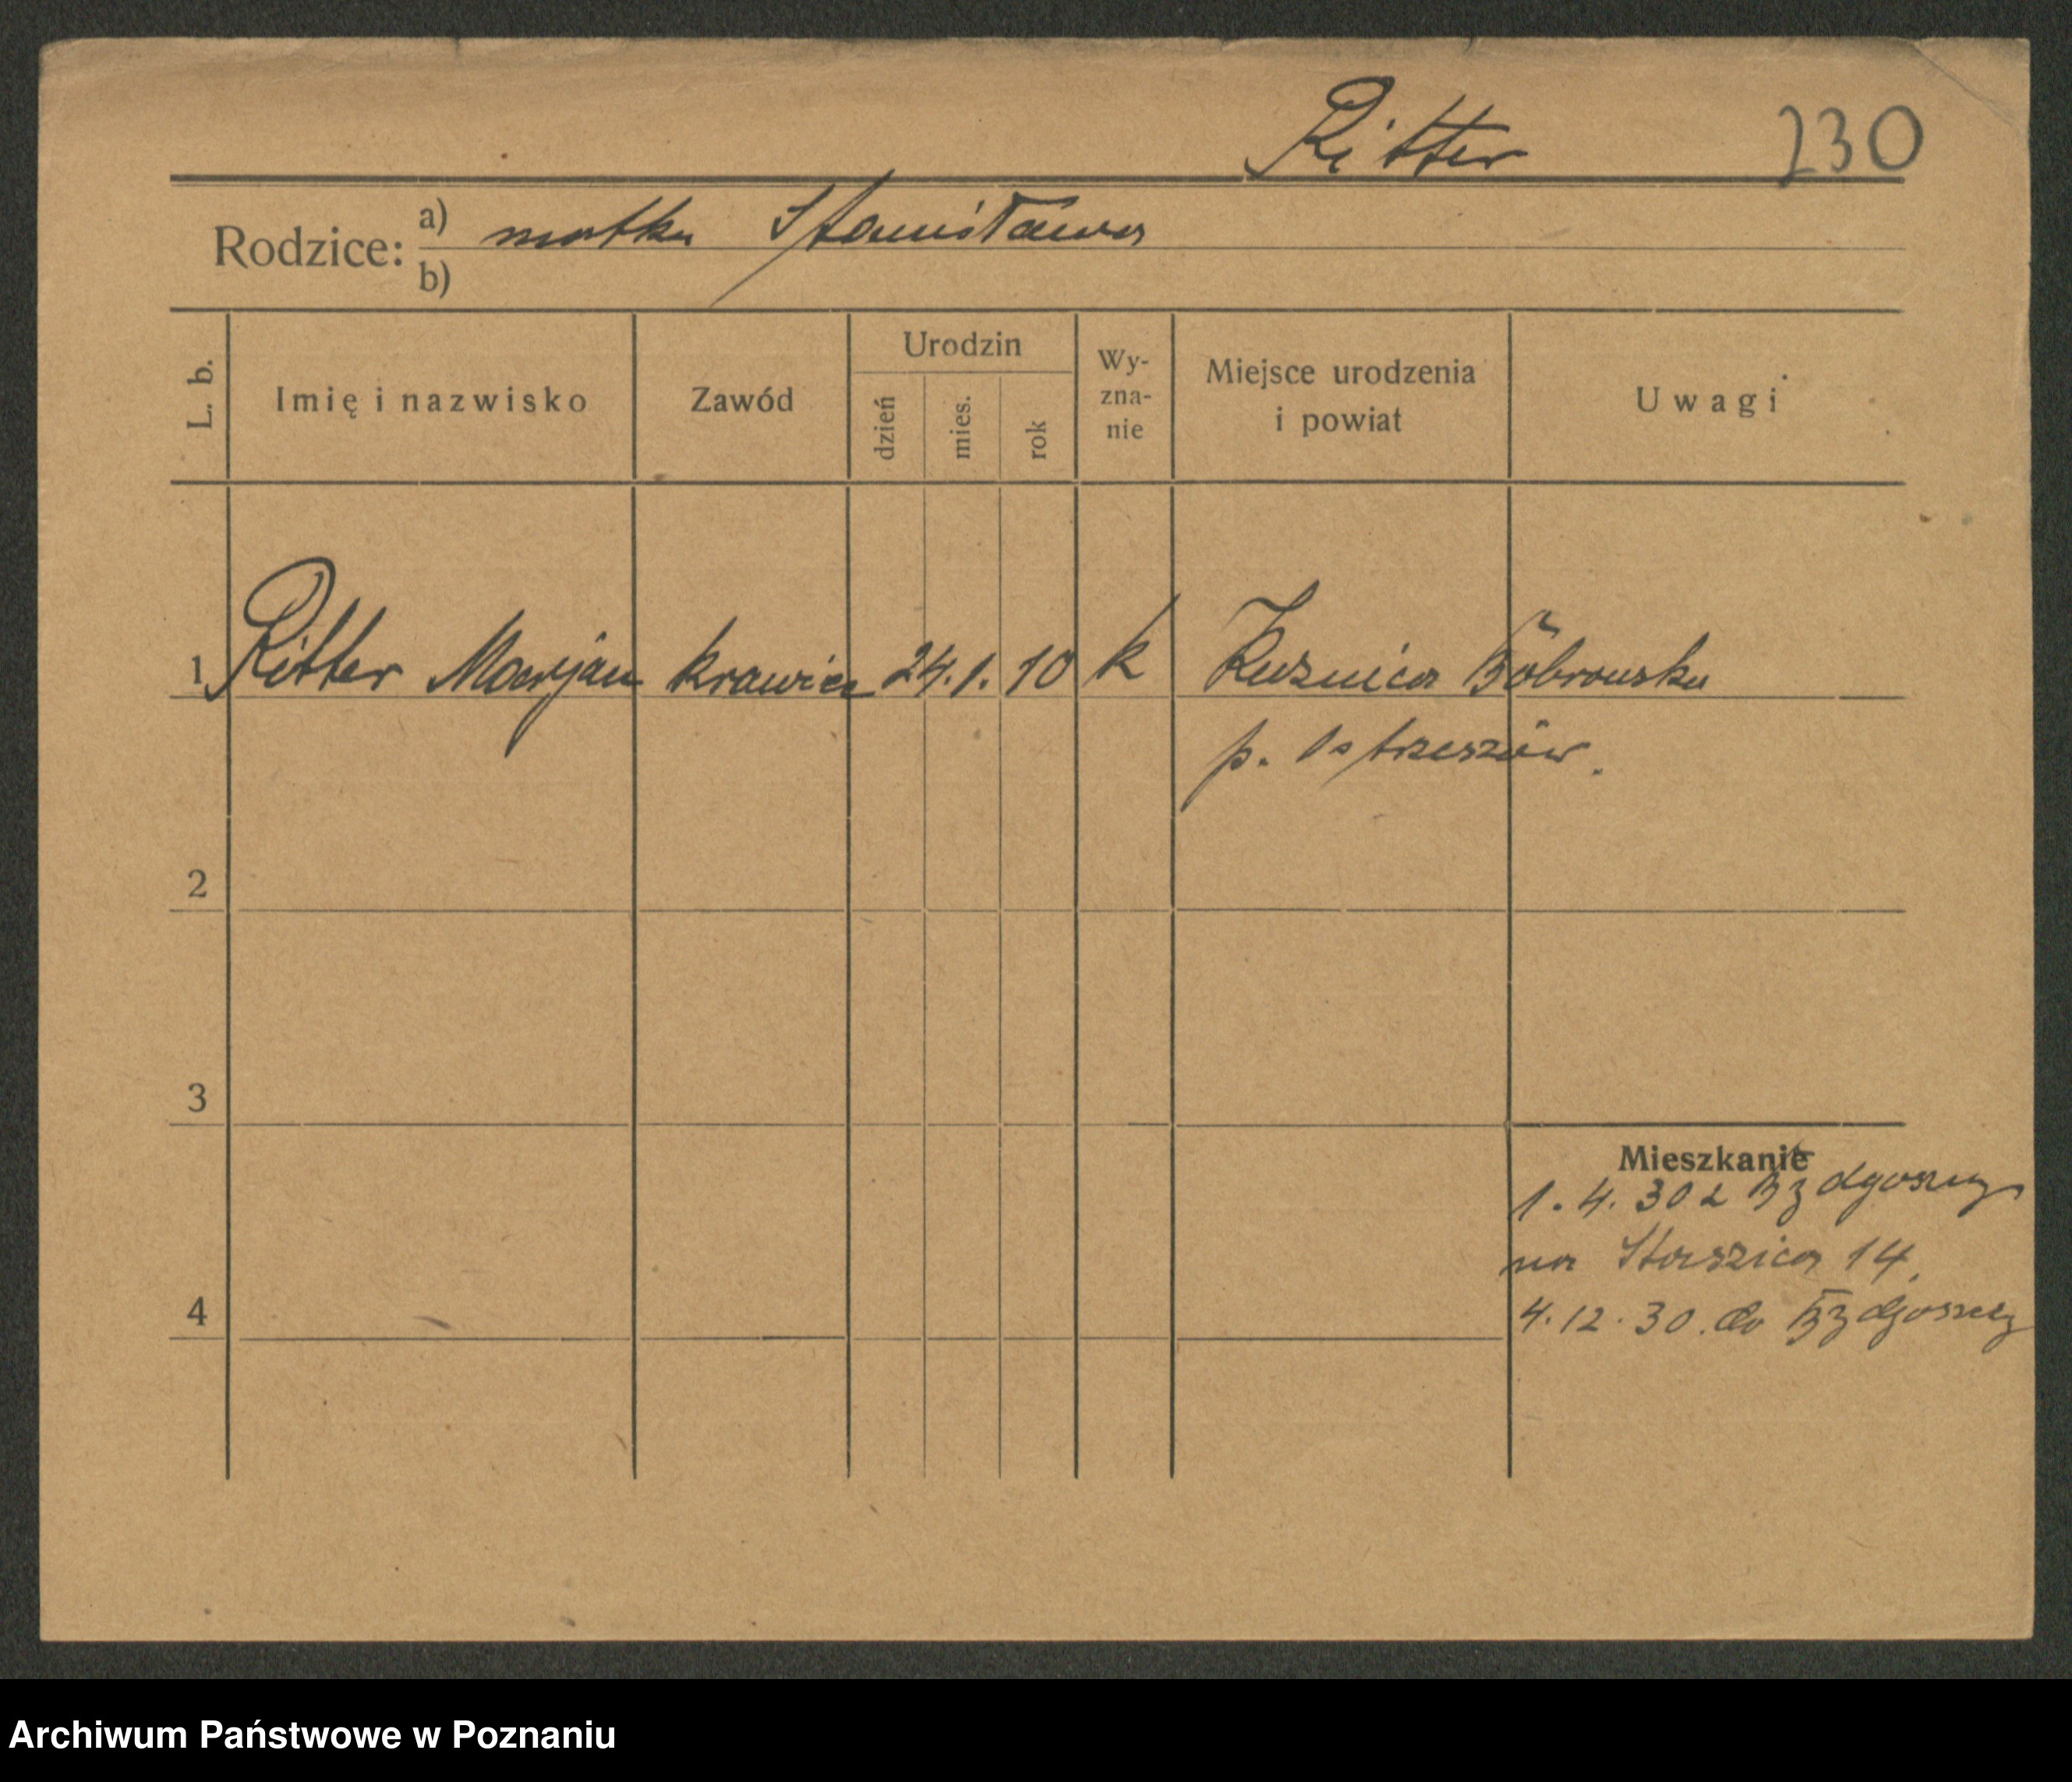 Ritter 230
Rodzice: a) matka Stanisława
b)
L. b. Imię i nazwisko Zawód Urodzin dzień mies. rok Wy-zna-nie Miejsce urodzenia i powiat Uwagi
1 Ritter Marjan krawiec 24. 1. 10 k Kuznica Bobrowska
p. Ostrzeszów.
2
3
Mieszkanie
1. 4. 30 z Bydgoszczy
na Staszica 14.
4
4. 12. 30. do Bydgoszczy
Archiwum Państwowe w Poznaniu